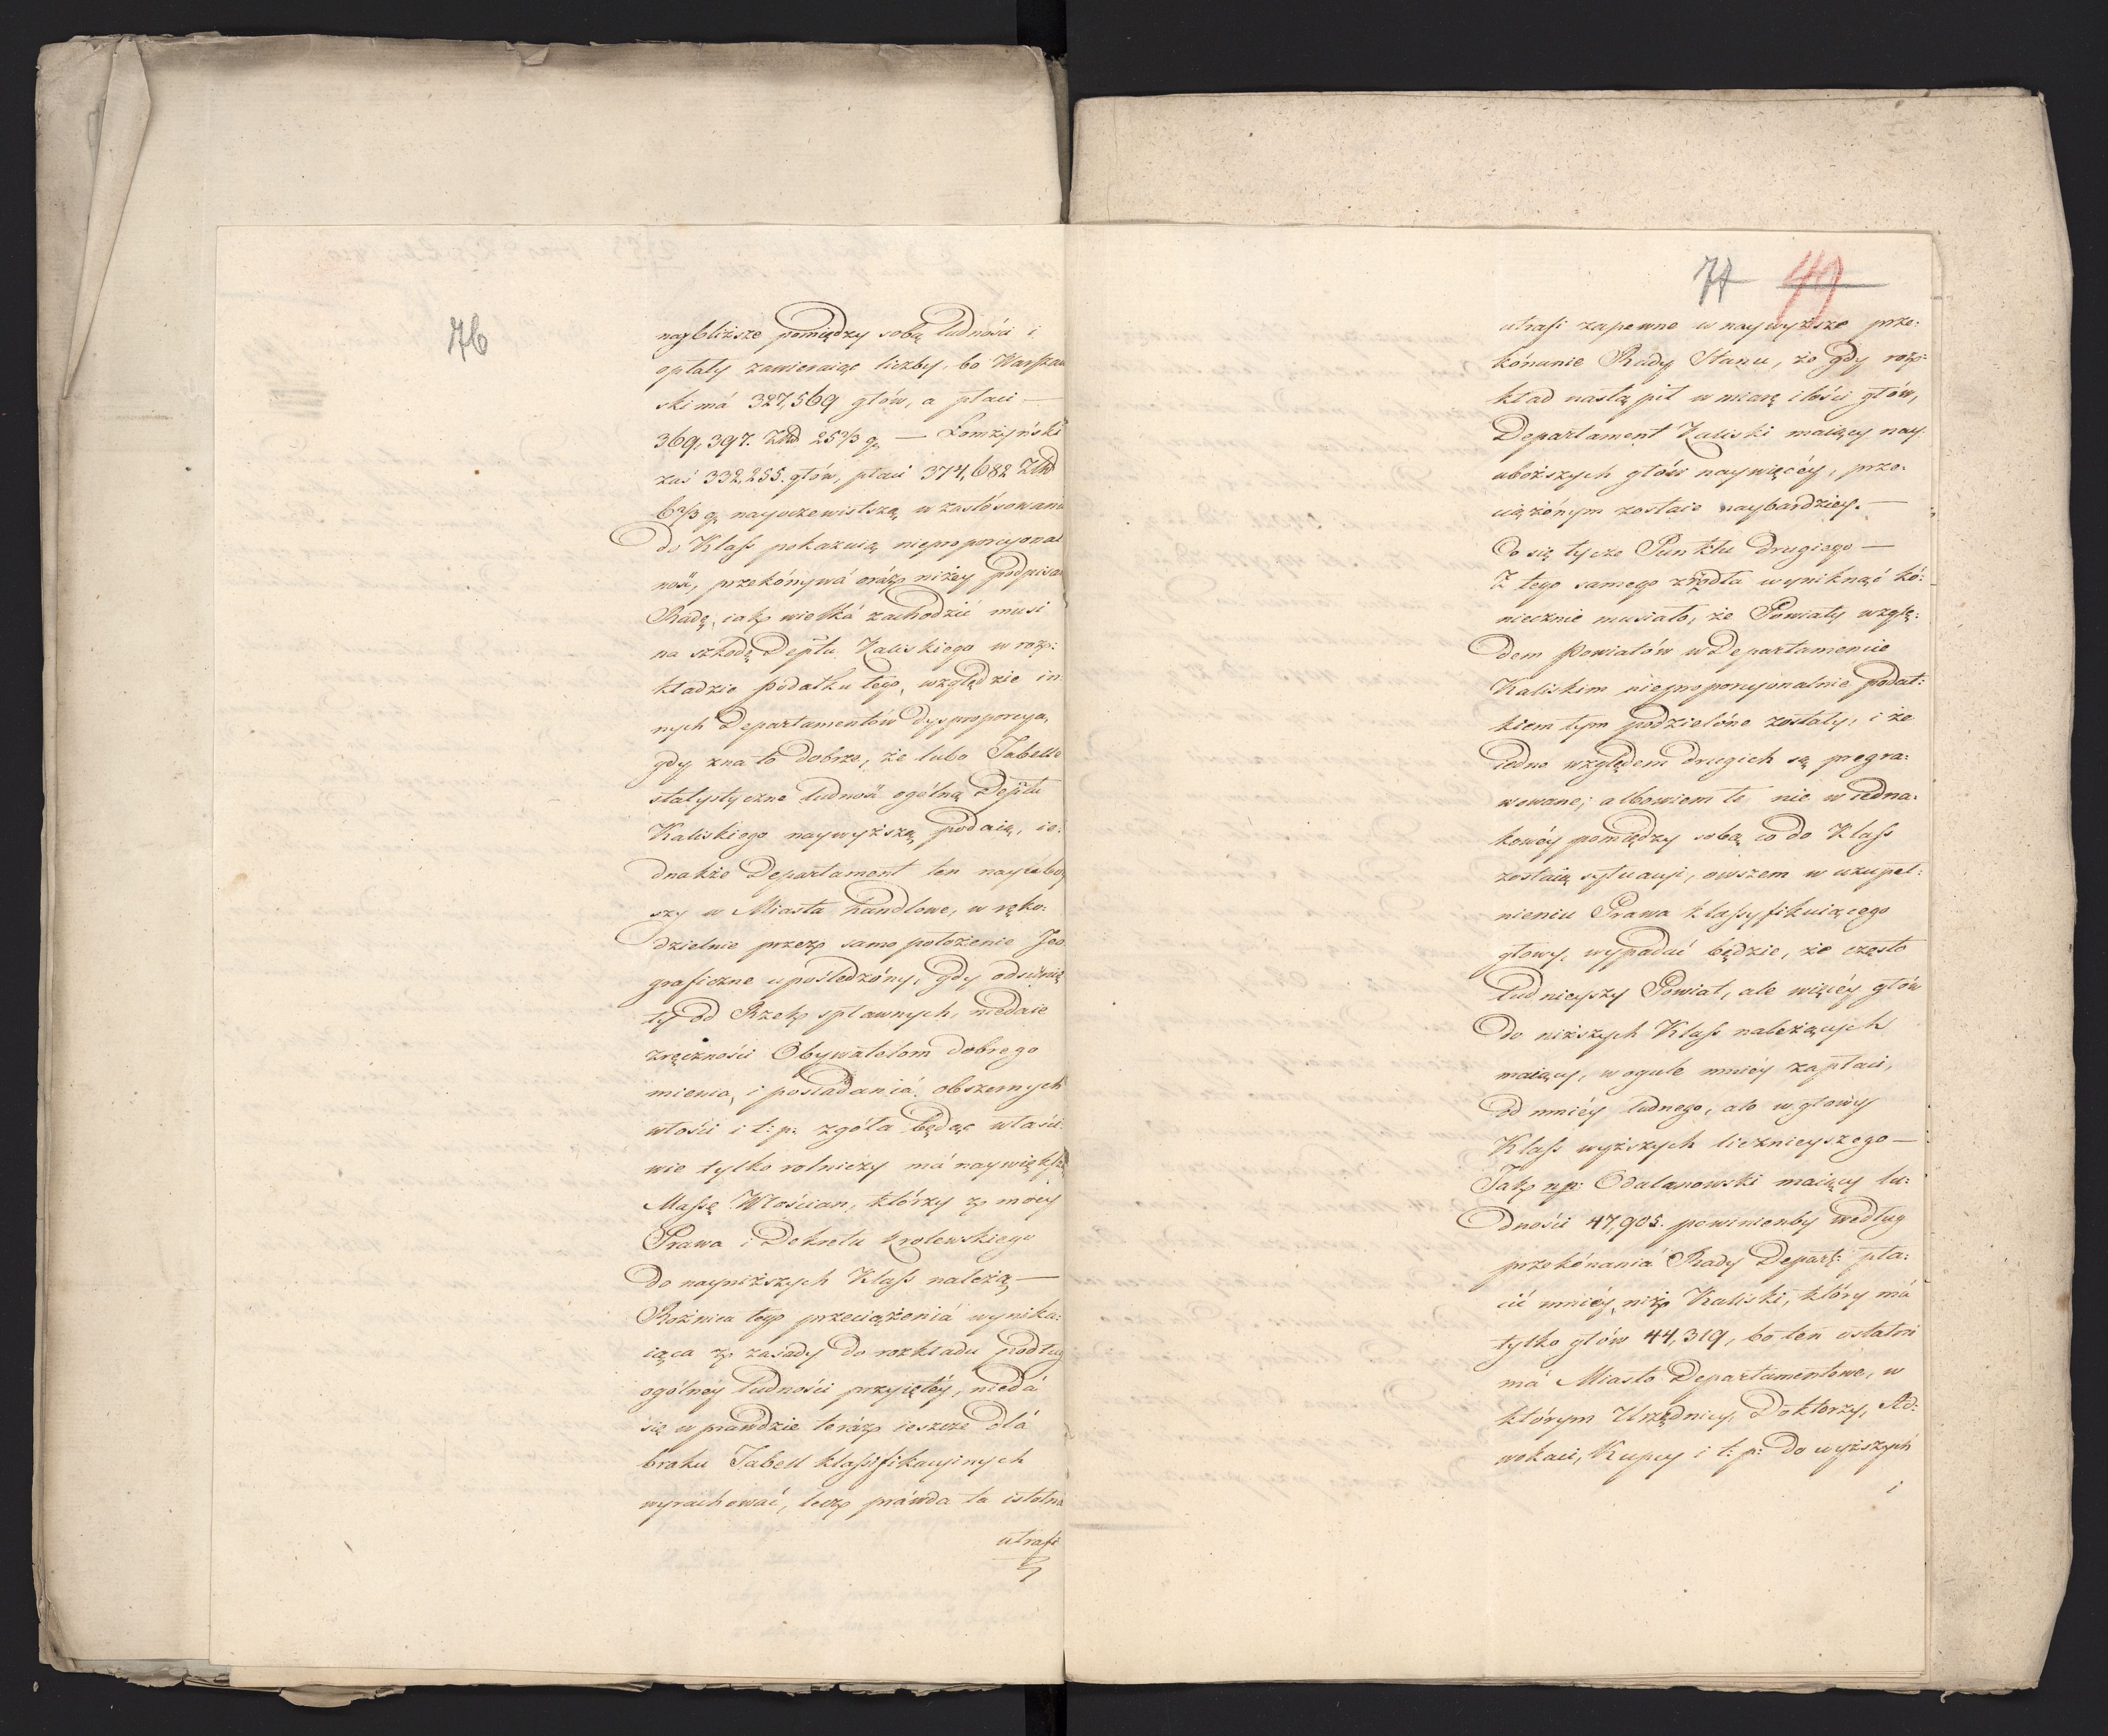 76
naybliższe pomiędzy sobą ludności i
opłaty zawieraiąc liczby, bo Warszaw
ski má 327,569 głów, a płaci —
369,397. Złtt 25 2/3 g. — Łomżyński
zaś 332,255. głów, płaci 374,682 Złtt
6 2/3 g. nayoczewistszą w zastósowaniu
do Klass pokazuią nieproporcyonal
ność, przekónywá oráz niżey podpisan
Radę, iak wielká zachodzić musi
na szkodę Deptu Kaliskiego w roz:
kładzie podatku tego, względzie in
nych Departamentów dysproporcya,
gdy zna to dobrze, że lubo Tabelle
statystyczne ludność ogólną Deptu
Kaliskiego naywyższą podaią, ie:
dnakże Departament ten naysłab
szy w Miasta handlowe, w ręko:
dzielnie przez samo położenie Jeo
graficzne upośledzóny, gdy odsunię
ty od Rzek spławnych, niedaie
zręczności Obywatelom dobrego
mienia, i posiadaniá obszernych
włości i t: p: zgóła będąc właści
wie tylko rolniczy má naywiększą
Massę Włościan, którzy z mocy
Prawa i Dekretu Krolewskiego
do nayniższych Klass należą —
Rożnica tego przeciążeniá wynika:
iąca z zasady do rozkładu podług
ogólney ludności przyiętéy, niedá
się w prawdzie teráz ieszcze dlá
braku Tabell klassifikacyinych
wyrachować, lecz práwda ta istotna
utrafi
77 49
utrafi zapewne w naywyższe prze:
kónanie Rady Stanu, że gdy roz:
kład nastąpił w miarę ilości głów,
Departament Kaliski maiący nay
uboższych głów naywięcéy, prze:
ciążónym zostaie naybardziey. —
Co się tycze Punktu drugiego —
Z tego samego zrodła wyniknąć kó:
niecznie musiało, że Powiaty wzglę:
dem Powiatów w Departamencie
Kaliskim nieproporcyonalnie podat:
kiem tym podzielóne zostały, i że
iedne względem drugich są pregra:
wowane; albowiem te nie w iedna:
kowéy pomiędzy sobą co do Klass
zostaią sytuacyi, owszem w uzupeł:
nieniu Prawa klassyfikuiącego
głowy, wypadać będzie, że często
ludnieyszy Powiat, ale więcéy głów
do niższych Klass należących
maiący, w ogule mniéy zapłaci,
od mniéy ludnego, ale w głowy
Klass wyższych licznieyszego —
Tak np: Odalanowski maiący lu:
dności 47,905. powinienby według
przekónaniá Rady Depart: pła:
cić mniéy niż Kaliski, który má
tylko głów 44,319, bo ten ostatni
má Miasto Departamentowe, w
którym Urzędnicy, Doktorzy, Ad:
wokaci, Kupcy i t: p: do wyższych
i